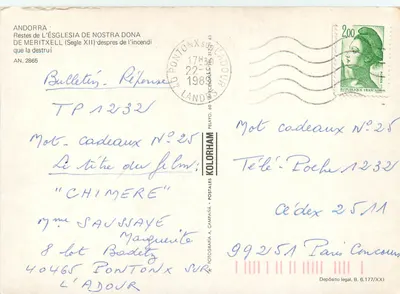 ANDORRA
Restes de L'ESGLESIA DE NOSTRA DONA
DE MERITXELL (Segle XII) despres de l'incendi
que la destruí
AN. 2865
Bulletin-Réponse
TP 1232
Mot-cadeaux N°25
Le titre du film:
"CHIMERE"
Mme SAUSSAYE
Marguerite
8 lot Baditz
40465 PONTONX SUR
L'ADOUR
17H
22-
1989
LANDES
KOLORHAM
POSTALES
FOTOGRAFIA A. CAMPAÑA
2,00
Mot cadeaux N°25
Télé-Poche 1232
Cédex 2511
992151 Paris Concours
Depósito legal, B. 8.177/XXI